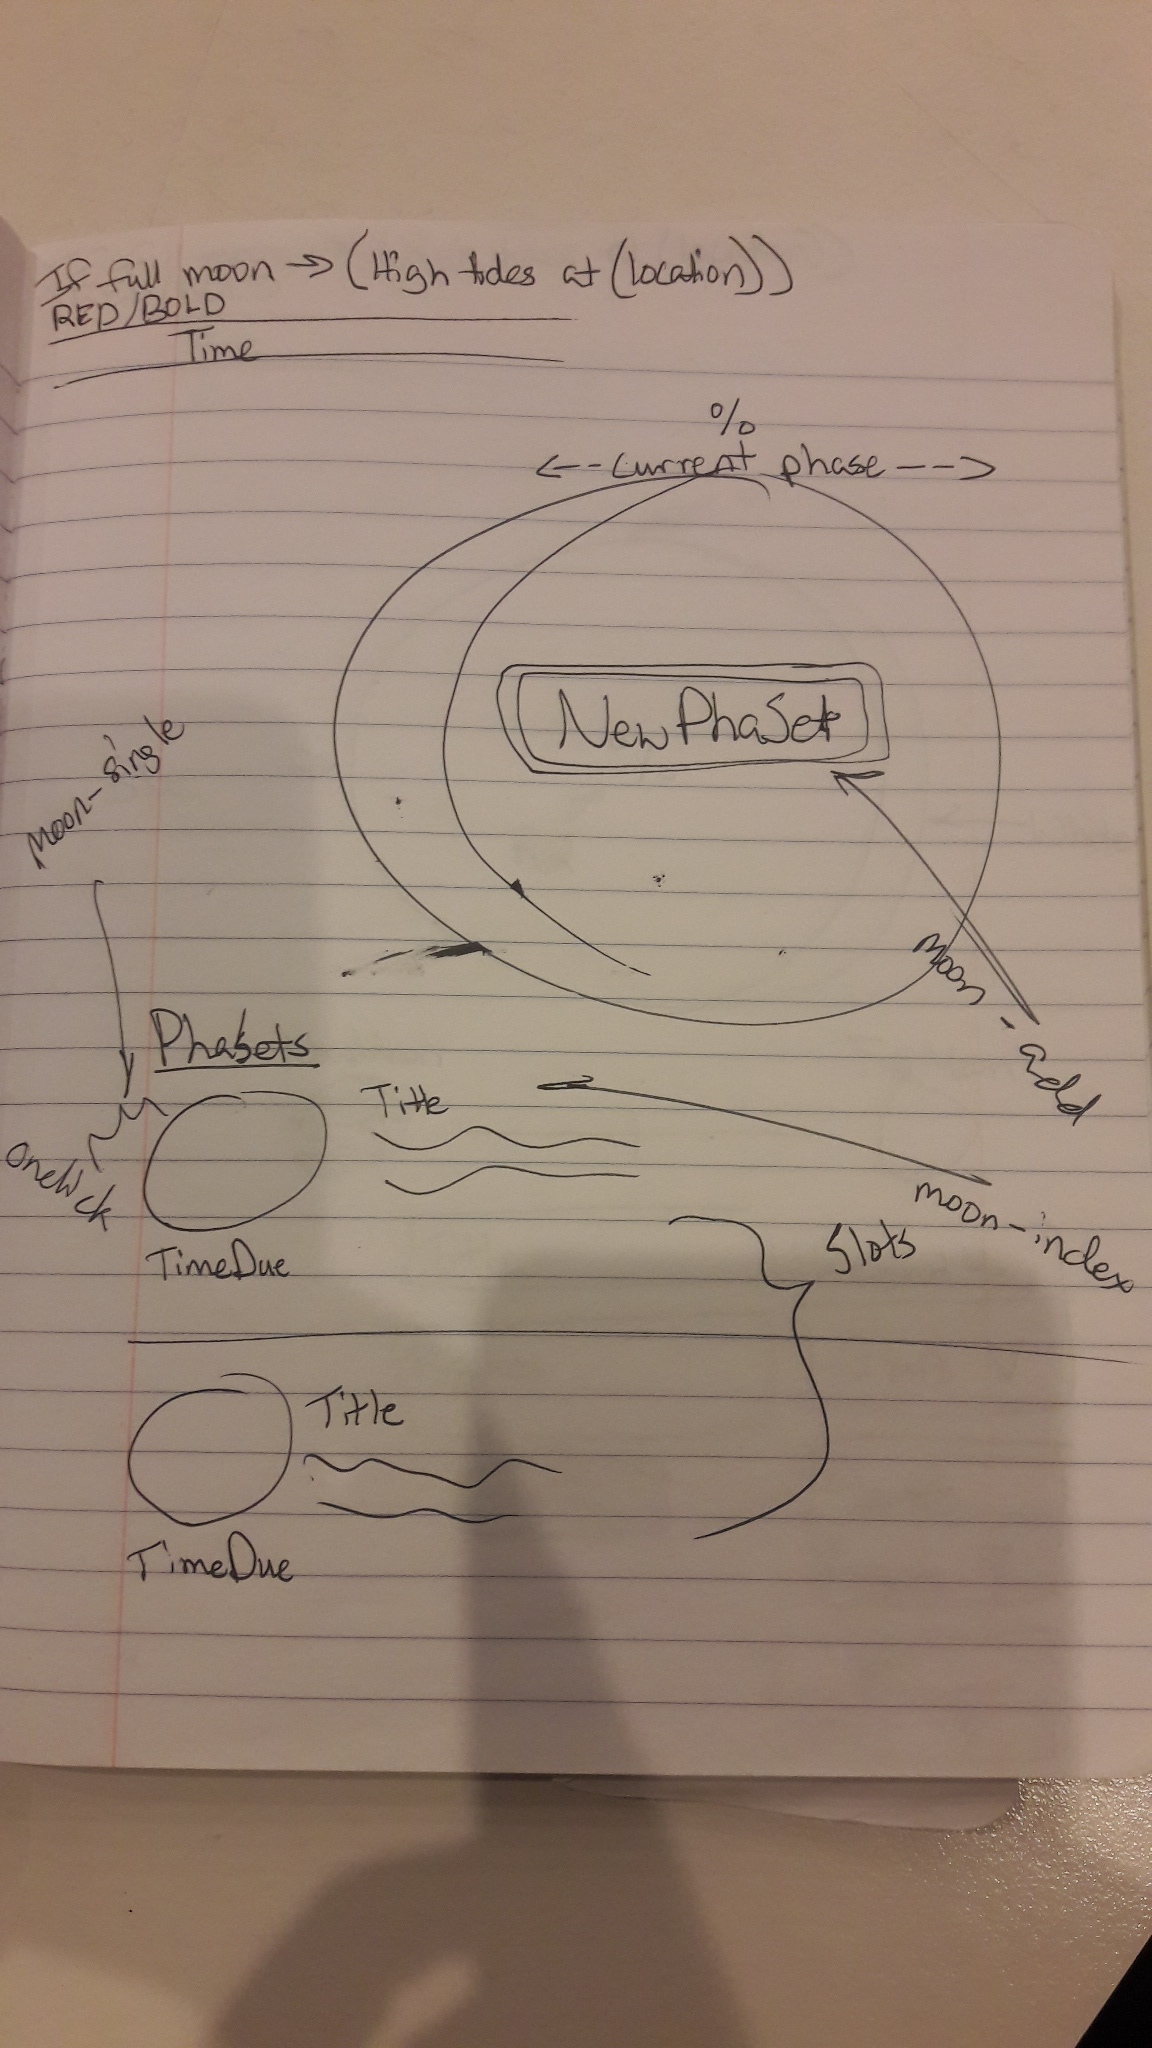 If full moon → (High tides at (location))
RED/BOLD
Time
%
<-- current phase -->
NewPhaSet
moon-single
moon-add
PhaSets
onclick
Title
moon-index
TimeDue
Slots
Title
TimeDue